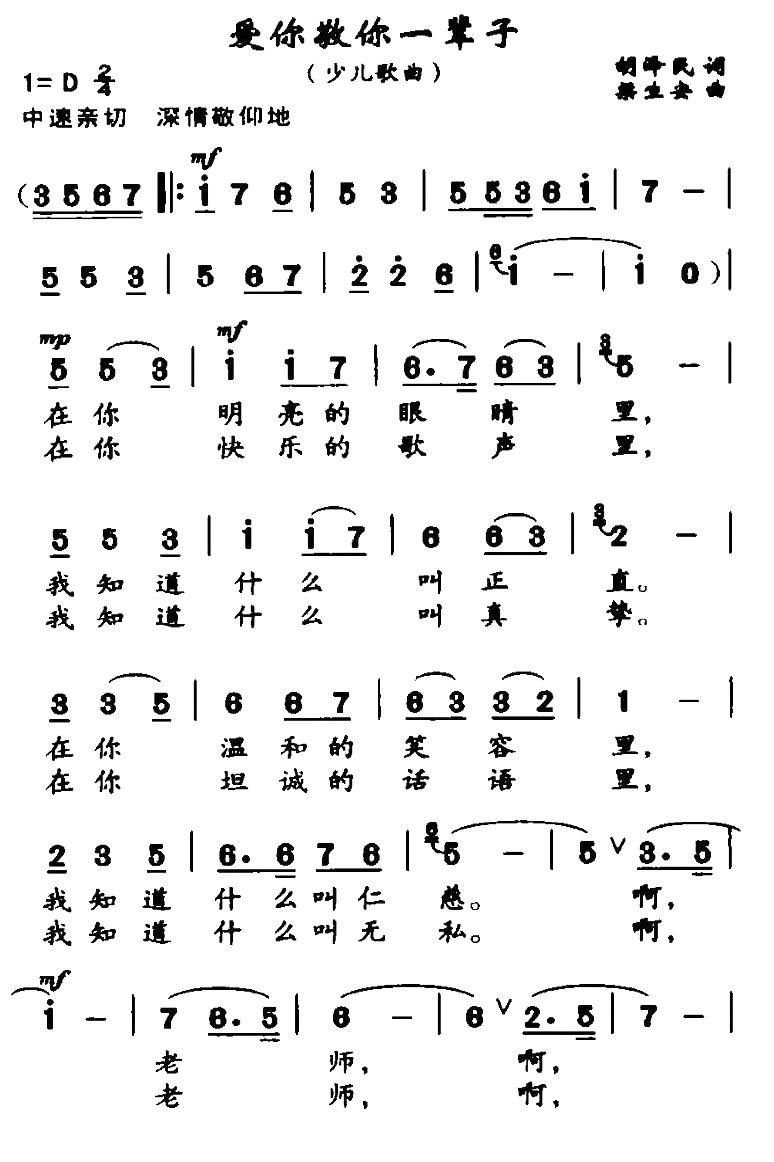 爱你敬你一辈子
（少儿歌曲）
1= D 2/4
胡泽民 词
梁立安 曲
中速亲切 深情敬仰地
mf
（3 5 6 7 ‖: i 7 6 | 5 3 | 5 5 3 6 i | 7 － |
5 5 3 | 5 6 7 | 2 2 6 | 6 i － | i 0 ）|
mp mf
5 5 3 | i i 7 | 6. 7 6 3 | 3 5 － |
在你 明亮的 眼 睛 里，
在你 快乐的 歌 声 里，
5 5 3 | i i 7 | 6 6 3 | 3 2 － |
我知道 什么 叫正 直。
我知道 什么 叫真 挚。
3 3 5 | 6 6 7 | 6 3 3 2 | 1 － |
在你 温和的 笑 容 里，
在你 坦诚的 话 语 里，
2 3 5 | 6. 6 7 6 | 6 5 － | 5 ∨ 3. 5 |
我知道 什么叫仁 慈。 啊，
我知道 什么叫无 私。 啊，
mf
i － | 7 6. 5 | 6 － | 6 ∨ 2. 5 | 7 － |
老 师， 啊，
老 师， 啊，